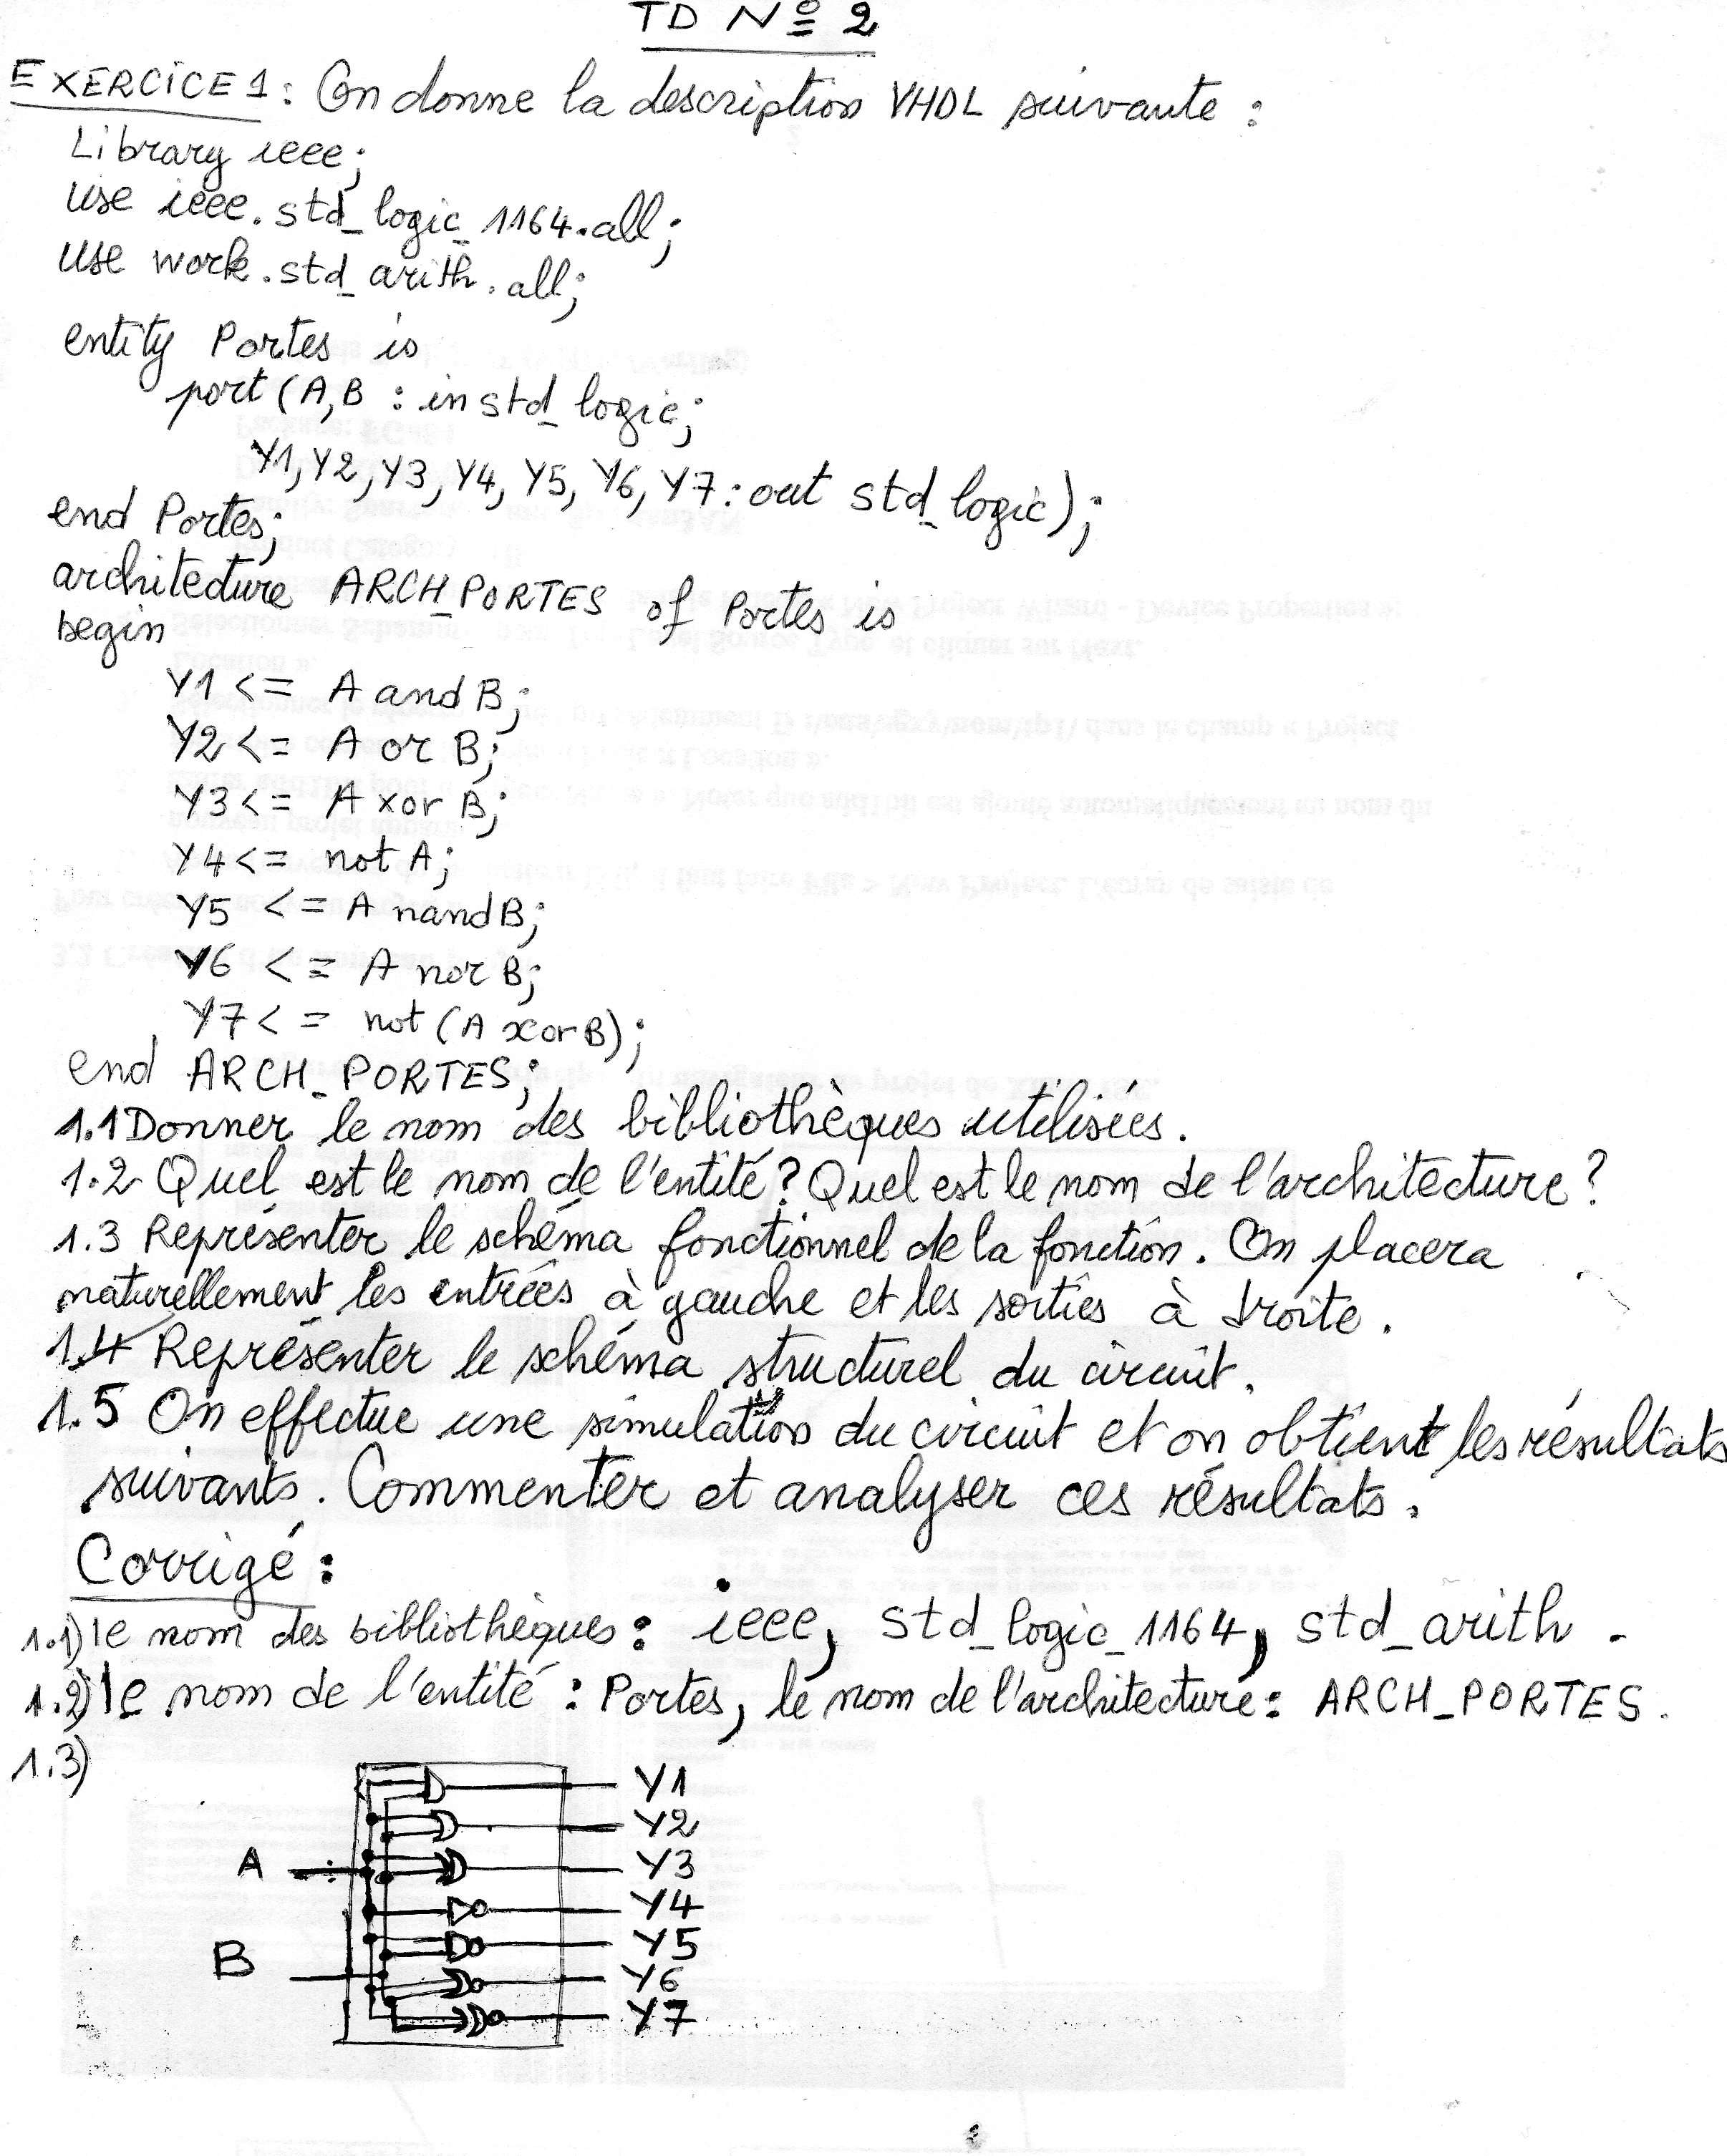 TD Nº 2
EXERCICE 1 : On donne la description VHDL suivante :
Library ieee;
Use ieee.std_logic_1164.all;
Use work.std_arith.all;
entity Portes is
port (A,B : in std_logic;
Y1, Y2, Y3, Y4, Y5, Y6, Y7 : out std_logic);
end Portes;
architecture ARCH_PORTES of Portes is
begin
Y1 <= A and B;
Y2 <= A or B;
Y3 <= A xor B;
Y4 <= not A;
Y5 <= A nand B;
Y6 <= A nor B;
Y7 <= not (A xor B);
end ARCH_PORTES;
1.1 Donner le nom des bibliothèques utilisées.
1.2 Quel est le nom de l'entité ? Quel est le nom de l'architecture ?
1.3 Représenter le schéma fonctionnel de la fonction. On placera
naturellement les entrées à gauche et les sorties à droite.
1.4 Représenter le schéma structurel du circuit.
1.5 On effectue une simulation du circuit et on obtient les résultats
suivants. Commenter et analyser ces résultats.
Corrigé :
1.1) le nom des bibliothèques : ieee, std_logic_1164, std_arith.
1.2) le nom de l'entité : Portes, le nom de l'architecture : ARCH_PORTES.
1.3)
Y1
Y2
A Y3
Y4
B Y5
Y6
Y7